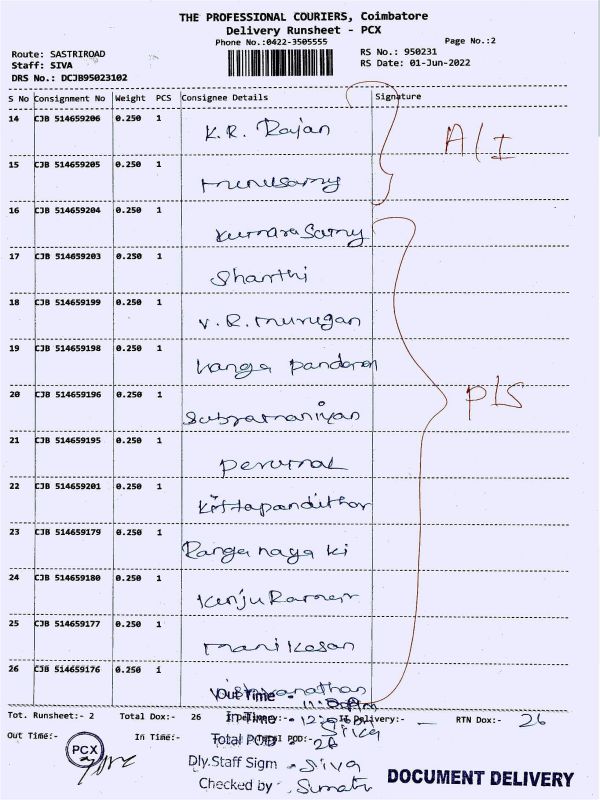 THE PROFESSIONAL COURIERS, Coimbatore
Delivery Runsheet - PCX
Phone No.:0422-3505555
Page No.:2
Route: SASTRIROAD
RS No.: 950231
Staff: SIVA
RS Date: 01-Jun-2022
DRS No.: DCJB95023102
S No Consignment No Weight PCS Consignee Details Signature
14 CJB 514659206 0.250 1 K.R. Rajan
A/I
15 CJB 514659205 0.250 1 Munusamy
16 CJB 514659204 0.250 1 Kumara Samy
17 CJB 514659203 0.250 1 Shanthi
18 CJB 514659199 0.250 1 V.R. Murugan
19 CJB 514659198 0.250 1 Panda
20 CJB 514659196 0.250 1 Subramaniyan
PLS
21 CJB 514659195 0.250 1 Perumal
22 CJB 514659201 0.250 1
23 CJB 514659179 0.250 1 Ranga naya ki
24 CJB 514659180 0.250 1
25 CJB 514659177 0.250 1
26 CJB 514659176 0.250 1
Out Time -
Tot. Runsheet:- 2 Total Dox:- 26 Delivery:- RTN Dox:- 26
In Time - Siva
Out Time:- In Time:- Total POD:- 26
PCX
Dly.Staff Sigm - Siva
Checked by - Sumathi
DOCUMENT DELIVERY